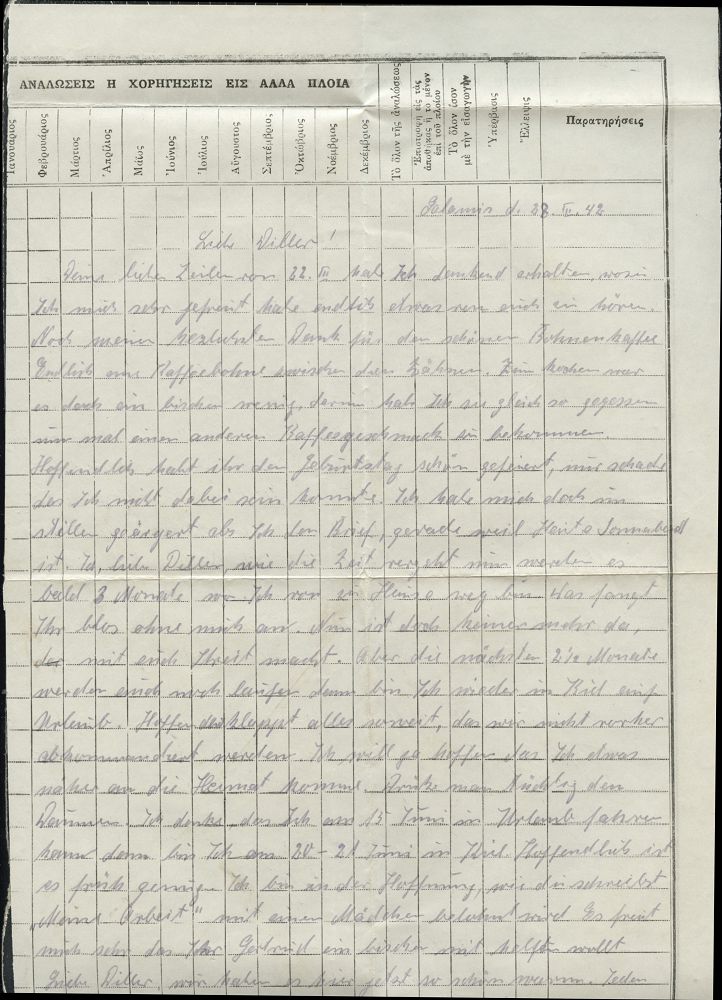 ΑΝΑΛΩΣΕΙΣ Η ΧΟΡΗΓΗΣΕΙΣ ΕΙΣ ΑΛΛΑ ΠΛΟΙΑ
Ἰανουάριος
Φεβρουάριος
Μάρτιος
Ἀπρίλιος
Μάϊος
Ἰούνιος
Ἰούλιος
Αὔγουστος
Σεπτέμβριος
Ὀκτώβριος
Νοέμβριος
Δεκέμβριος
Τὸ ὅλον τῆς ἀναλώσεως
Ἐπιστροφὴ εἰς τὰς ἀποθήκας ἢ τὸ μένον ἐπὶ τοῦ πλοίου
Τὸ ὅλον ἴσον μὲ τὴν εἰσαγωγὴν
Ὑπέρβασις
Ἔλλειψις
Παρατηρήσεις
Salamis d. 28. III. 42
Liebe Diller!
Deine lieben Zeilen von 22. III habe Ich dankend erhalten, worin
Ich mich sehr gefreut habe endlich etwas von euch zu hören.
Noch meinen herzlichsten Dank für den schönen Bohnenkaffee
Endlich eine Kaffeebohne zwischen den Zähnen. Zum kochen war
es doch ein bischen wenig, darum hab Ich sie gleich so gegessen
um mal einen anderen Kaffeegeschmack zu bekommen.
Hoffendlich habt ihr den Geburtstag schön gefeiert, nur schade
das Ich nicht dabei sein konnte. Ich habe mich doch im
stillen geärgert als Ich den Brief, gerade weil Heute Sonnabend
ist. Ja, liebe Diller, wie die Zeit vergeht nun werden es
bald 3 Monate wo Ich von zu Hause weg bin. Was fangt
Ihr blos ohne mich an. Nun ist doch keiner mehr da,
der mit euch Streit macht. Aber die nächsten 2½ Monate
werden auch noch laufen dann bin Ich wieder in Kiel auf
Urlaub. Hoffen das klappt alles soweit, das wir nicht vorher
abkommandiert werden. Ich will ja hoffen das Ich etwas
näher an die Heimat komme. Drücke man tüchtig den
Daumen. Ich denke, das Ich am 15 Juni in Urlaub fahren
kann dann bin Ich am 20-21 Juni in Kiel Hoffendlich ist
es früh genug. Ich bin in der Hoffnung, wie du schreibst
"Meine Arbeit" mit einen Mädchen belohnt wird Es freut
mich sehr das Ihr Gertrud ein bischen mit helfen wollt
Liebe Diller, wir haben es hier jetzt so schön warm. Jeden